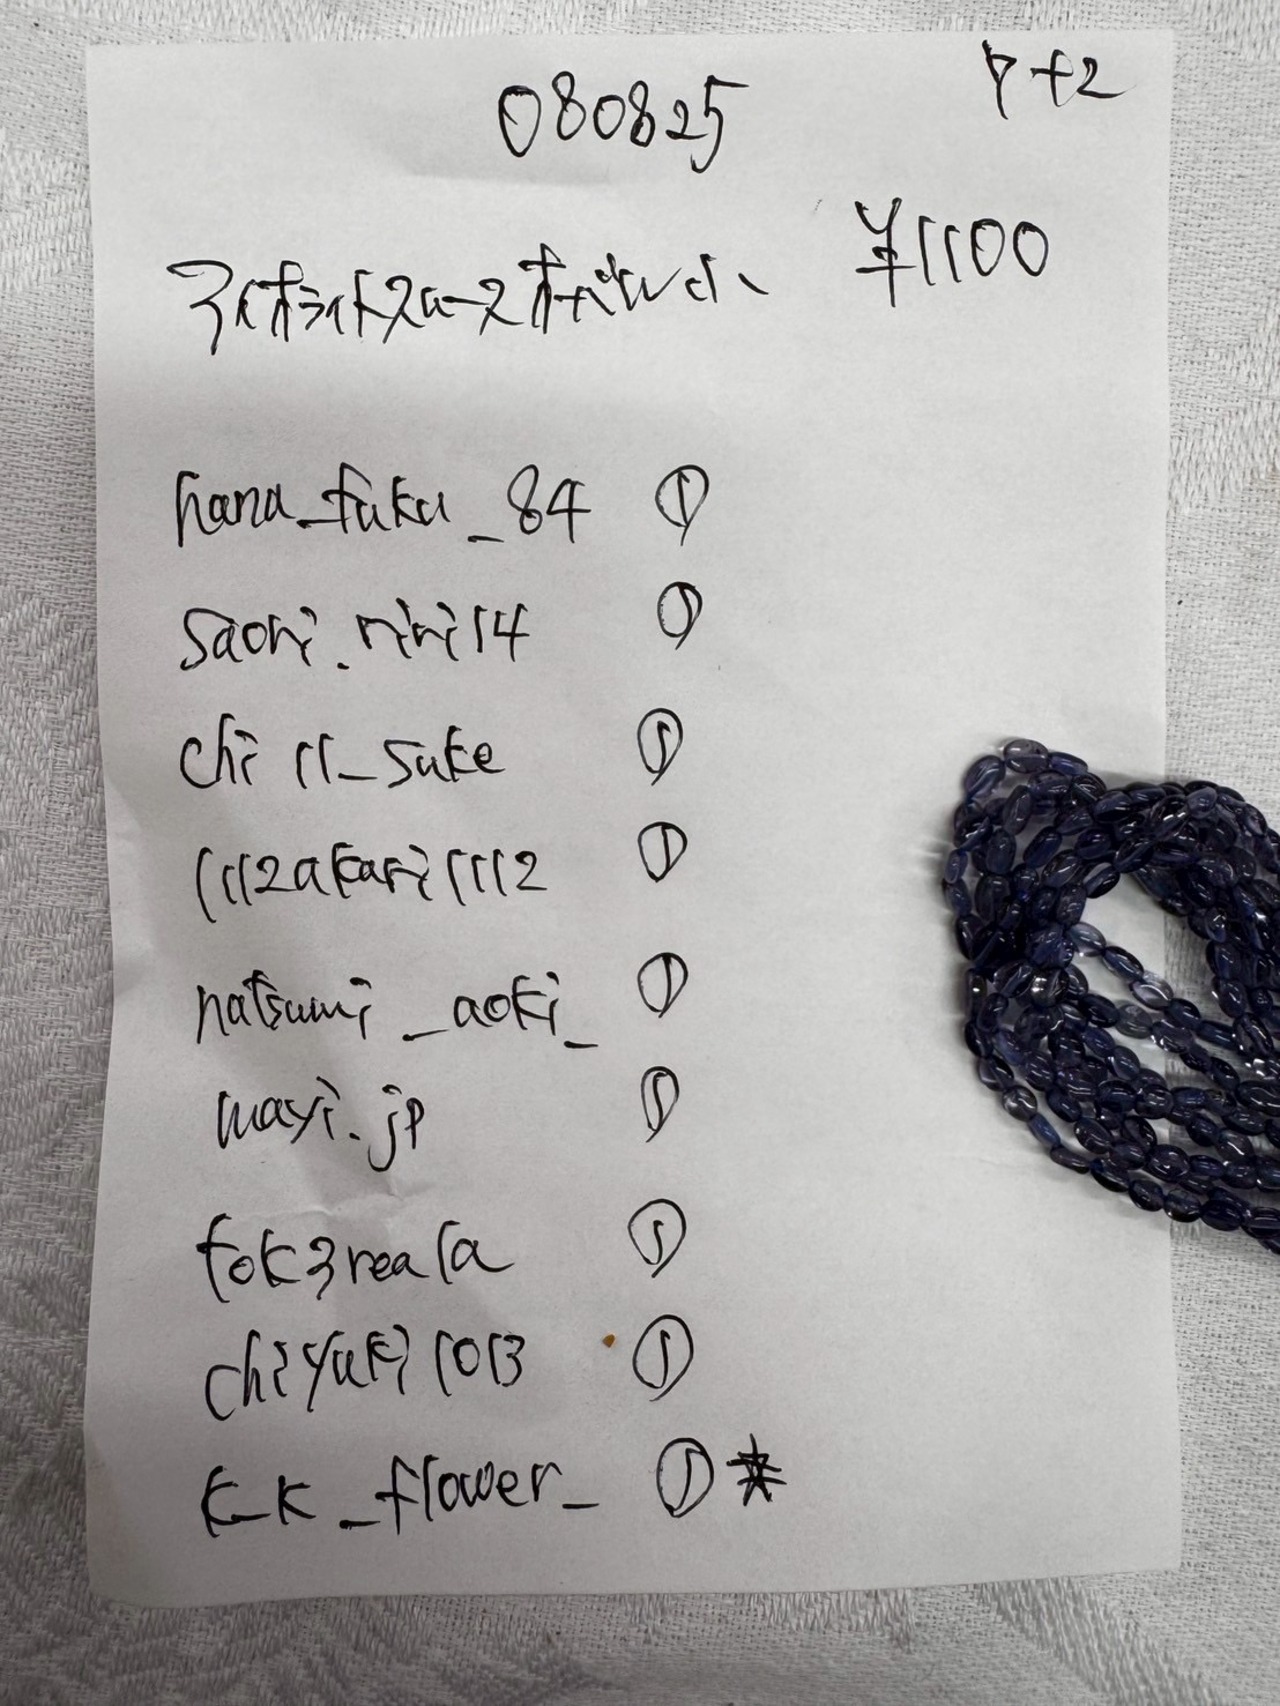 080825
7+2
¥1100
アイオライトスムースオーバル小
hana_fuku_84 ①
saori.riri14 ①
chi11_suke ①
1112akari1112 ①
natsumi_aoki_ ①
mayi.jp ①
tok3reala ①
chiyuki1013 ①
k_k_flower_ ①*